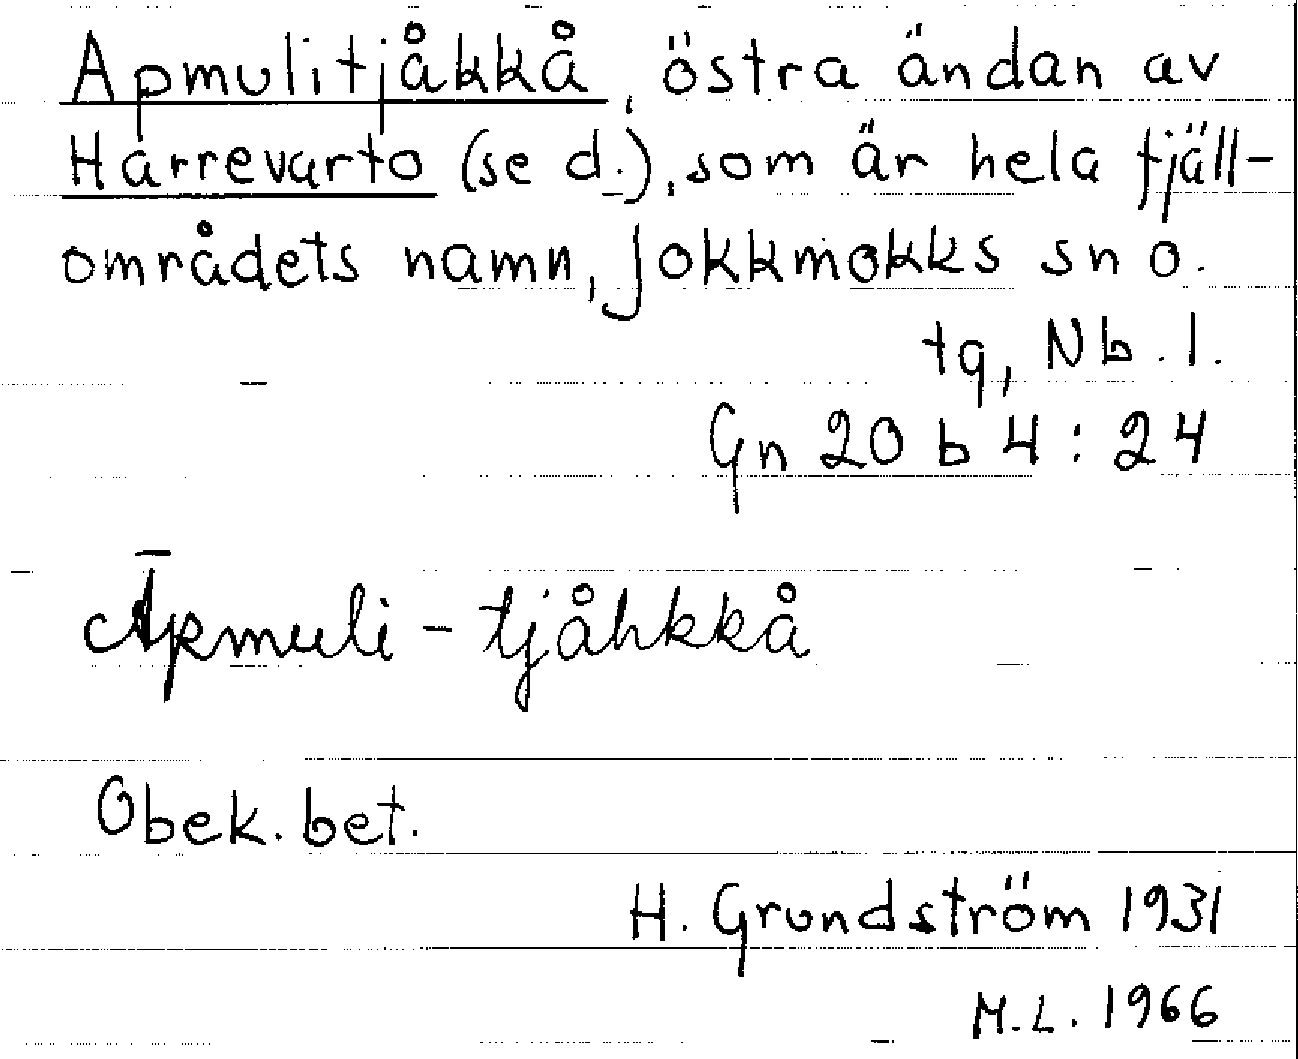 Apmulitjåkkå, östra ändan av
Harrevarto (se d.), som är hela fjäll-
området​s namn, Jokkmokks sn o.
tg, Nb. l.
Gn 20 b 4 : 24
Āpmuli - tjåhkkå
Obek. bet.
H. Grundström 1931
M.L. 1966